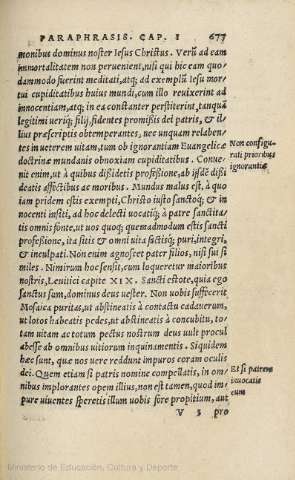 PARAPHRASIS. CAP. I 677
monibus dominus noster Iesus Christus. Verū ad eam
immortalitatem non peruenient, nisi qui hic eam quo-
dammodo fuerint meditati, atq; ad exemplū Iesu mor-
tui cupiditatibus huius mundi, cum illo reuixerint ad
innocentiam, atq; in ea constanter perstiterint, tanquā
legitimi ueriq; filij, fidentes promissis dei patris, & il-
lius præscriptis obtemperantes, nec unquam relaben-
tes in ueterem uitam, tum ob ignorantiam Euangelicæ
doctrinæ mundanis obnoxiam cupiditatibus. Conue-
nit enim, ut à quibus dißidetis profeßione, ab ijsdē dißi
deatis affectibus ac moribus. Mundus malus est, à quo
iam pridem estis exempti, Christo iusto sanctoq; & in
nocenti insiti, ad hoc delecti uocatiq; à patre sanctita-
tis omnis fonte, ut uos quoq; quemadmodum estis sancti
profeßione, ita sitis & omni uita sanctiq; puri, integri,
& inculpati. Non enim agnoscet pater filios, nisi sui si
miles. Nimirum hoc sensit, cum loqueretur maioribus
nostris, Leuitici capite XIX. Sancti estote, quia ego
sanctus sum, dominus deus uester. Non uobis suffecerit
Mosaica puritas, ut abstineatis à contactu cadauerum,
ut lotos habeatis pedes, ut abstineatis à concubitu, to-
tam uitam ac totum pectus nostrum deus uult procul
abesse ab omnibus uitiorum inquinamentis. Siquidem
hæc sunt, quæ nos uere reddunt impuros coram oculis
dei. Quem etiam si patris nomine compellatis, in om-
nibus implorantes opem illius, non est tamen, quod im-
pure uiuentes speretis illum uobis fore propitium, aut
V 3 pro
Non configu-
rati prioribus
ignorantiæ
Et si patrem
inuocatis
eum
Ministerio de Educación, Cultura y Deporte